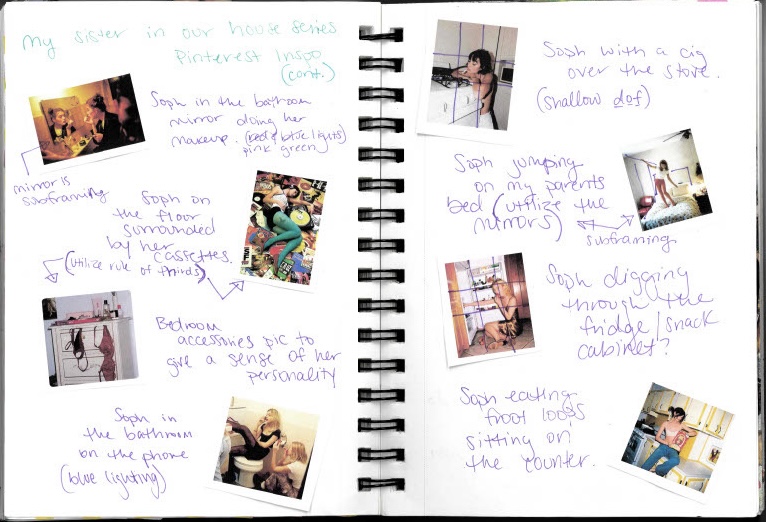 my sister in our house series
Pinterest Inspo
(cont.)
Soph in the bathroom
mirror doing her
makeup. (red & blue lights)
pink green
mirror is
subframing
Soph on
the floor
surrounded
by her
cassettes.
(utilize rule of thirds)
Bedroom
accessories pic to
give a sense of her
personality
Soph in
the bathroom
on the phone
(blue lighting)
Soph with a cig
over the stove.
(shallow dof)
Soph jumping
on my parents
bed (utilize the
mirrors)
subframing
Soph digging
through the
fridge/snack
cabinet?
Soph eating
froot loops
sitting on
the counter.